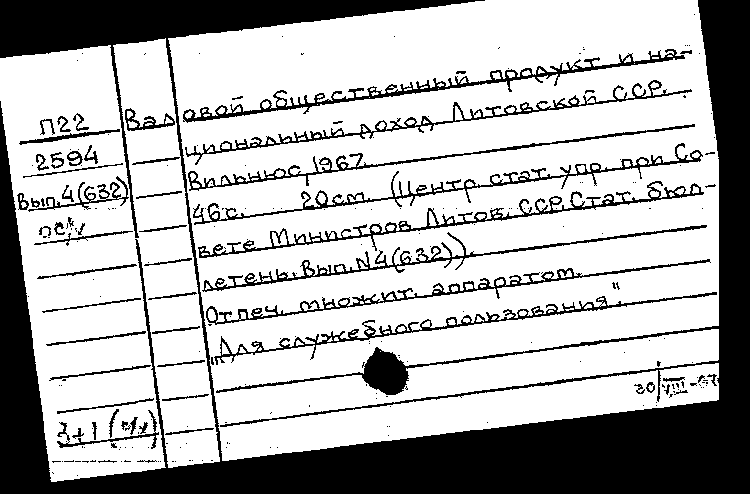 П22
2594
Вып. 4(632)
Валовой общественный продукт и на-
циональный доход Литовской ССР.
Вильнюс, 1967.
46с. 20см. (Центр. стат. упр. при Со-
вете Министров Литов. ССР. Стат. бюл-
летень. Вып. N4(632)).
Отпеч. множит. аппаратом.
"Для служебного пользования".
30/VIII-67
3+1